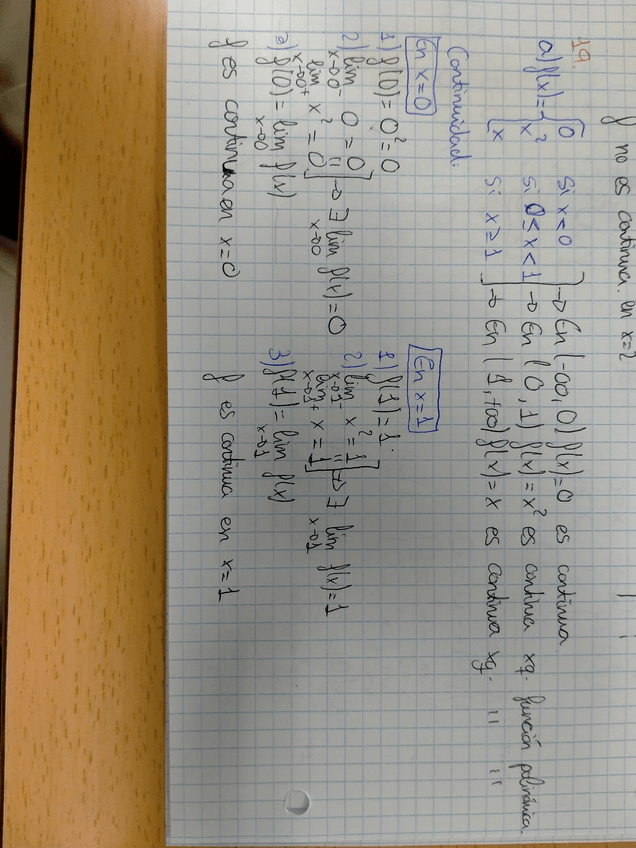 f no es continua en x=2
19.
a) f(x)= { 0 si x<0 → En (-∞, 0) f(x)=0 es continua
x² si 0≤x<1 → En (0, 1) f(x)=x² es continua xq. función polinómica
x si x≥1 → En (1, +∞) f(x)=x es continua xq. " "
Continuidad:
En x=0
1) f(0)=0²=0
2) lim x→0⁻ 0 = 0
lim x→0⁺ x² = 0 → ∃ lim x→0 f(x)=0
3) f(0)= lim x→0 f(x)
f es continua en x=0
En x=1
1) f(1)=1.
2) lim x→1⁻ x² = 1
lim x→1⁺ x = 1 → ∃ lim x→1 f(x)=1
3) f(1)= lim x→1 f(x)
f es continua en x=1